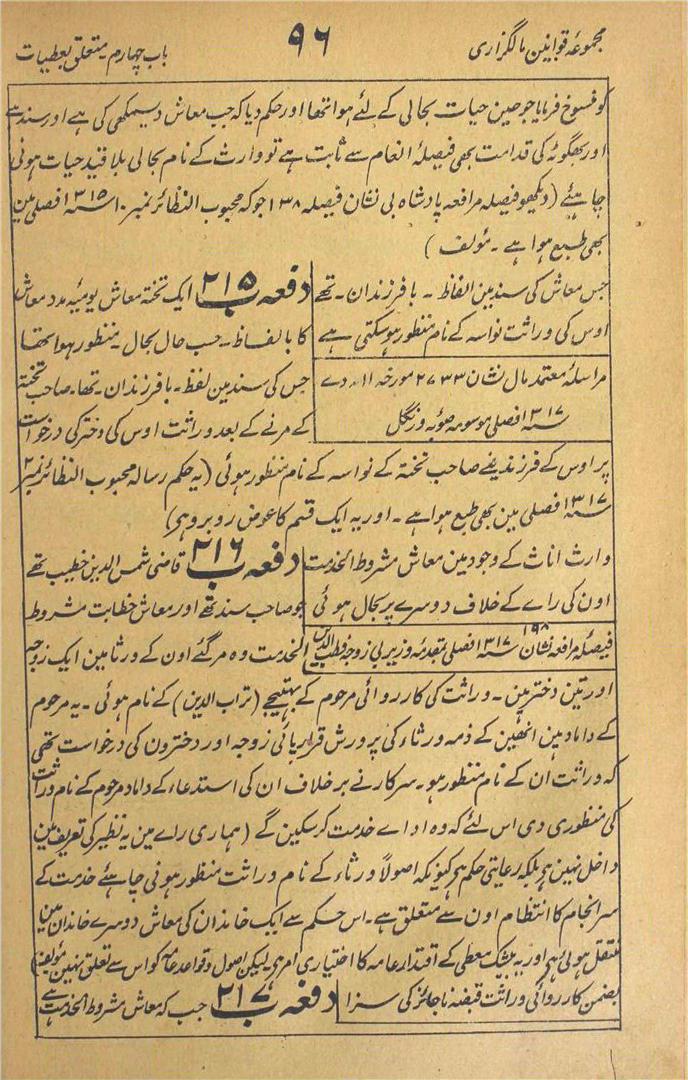 مجموعہ قوانین مالگزاری
۹۶
باب چہارم متعلق بعطیات
کو فسوخ فرمایا جو حین حیات بحالی کے لئے ہوا تھا اور حکم دیا کہ جب معاش دیسمکھی کی ہے اور سند سے
اور بھگوٹہ کی قدامت بھی فیصلۂ انعام سے ثابت ہے تو وارث کے نام بحالی بلا قید حیات ہونی
چاہئے (دیکھو فیصلہ مرافعہ پادشاہ بی نشان فیصلہ ۱۳۸ جو کہ محبوب النظائر نمبر ۱۰ سنہ ۱۳۱۵ فصلی مین
بھی طبع ہوا ہے ۔ مؤلف )
جس معاش کی سند مین الفاظ ۔ با فرزندان ۔ تھے
اوس کی وراثت نواسہ کے نام منظور ہو سکتی ہے
مراسلۂ معتمد مال نشان ۲۷۳۳ مورخہ ۱۱ دے
سنہ ۱۳۱۷ فصلی موسومہ صوبہ ورنگل
دفعہ ب ۲۱۵ ایک تختہ معاش یومیہ مدد معاش
کا بالفاظ ۔ حسب حال بحال ۔ منظور ہوا تھا
جس کی سند مین لفظ ۔ با فرزندان ۔ تھا ۔ صاحب تختہ
کے مرنے کے بعد وراثت اوس کی دختر کی درخواست
پر اوس کے فرزند یعنے صاحب تختہ کے نواسہ کے نام منظور ہوئی (یہ حکم رسالہ محبوب النظائر نمبر ۲
سنہ ۱۳۱۷ فصلی مین بھی طبع ہوا ہے ۔ اور یہ ایک قسم کا عوض روبرو ہے)
وارث اناث کے وجود مین معاش مشروط الخدمت
اون کی راے کے خلاف دوسرے پر بحال ہوئی
فیصلۂ مرافعہ نشان ۱۹۸ سنہ ۱۳۱۷ فصلی بمقدمہ وزیر بی زوجہ قطب الدین
دفعہ ب ۲۱۶ قاضی شمس الدین خطیب تھے
جو صاحب سند تھے اور معاش خطابت مشروط
الخدمت وہ مر گئے اون کے ورثا مین ایک زوجہ
اور تین دختر ہین ۔ وراثت کی کارروائی مرحوم کے بھتیجے (تراب الدین) کے نام ہوئی ۔ یہ مرحوم
کے داماد ہین انھین کے ذمہ ورثاء کی پرورش قرار پائی زوجہ اور دخترون کی درخواست تھی
کہ وراثت ان کے نام منظور ہو ۔ سرکار نے برخلاف ان کی استدعاء کے داماد مرحوم کے نام وراثت
کی منظوری دی اس لئے کہ وہ اداے خدمت کر سکین گے (ہماری راے مین یہ نظیر کی تعریف مین
داخل نہین ہے بلکہ رعایتی حکم ہے کیونکہ اصولاً ورثاء کے نام وراثت منظور ہونی چاہئے خدمت کے
سرانجام کا انتظام اون سے متعلق ہے ۔ اس حکم سے ایک خاندان کی معاش دوسرے خاندان مین
منتقل ہوئی ہے اور یہ بیشک معطی کے اقتدار عامہ کا اختیاری امر ہے لیکن اصول و قواعد عامہ کو اس سے تعلق نہین مؤلف)
بضمن کارروائی وراثت قبضہ ناجائز کی سزا
دفعہ ب ۲۱۷ جب کہ معاش مشروط الخدمت ہے